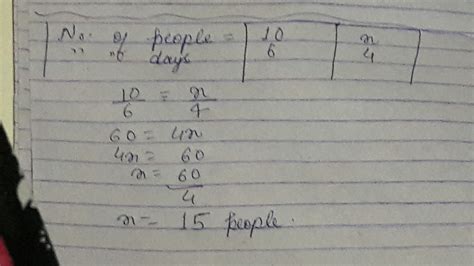 No: of people = 10 x
" " of days 6 4
10/6 = x/4
60 = 4x
4x = 60
x = 60/4
x = 15 people.